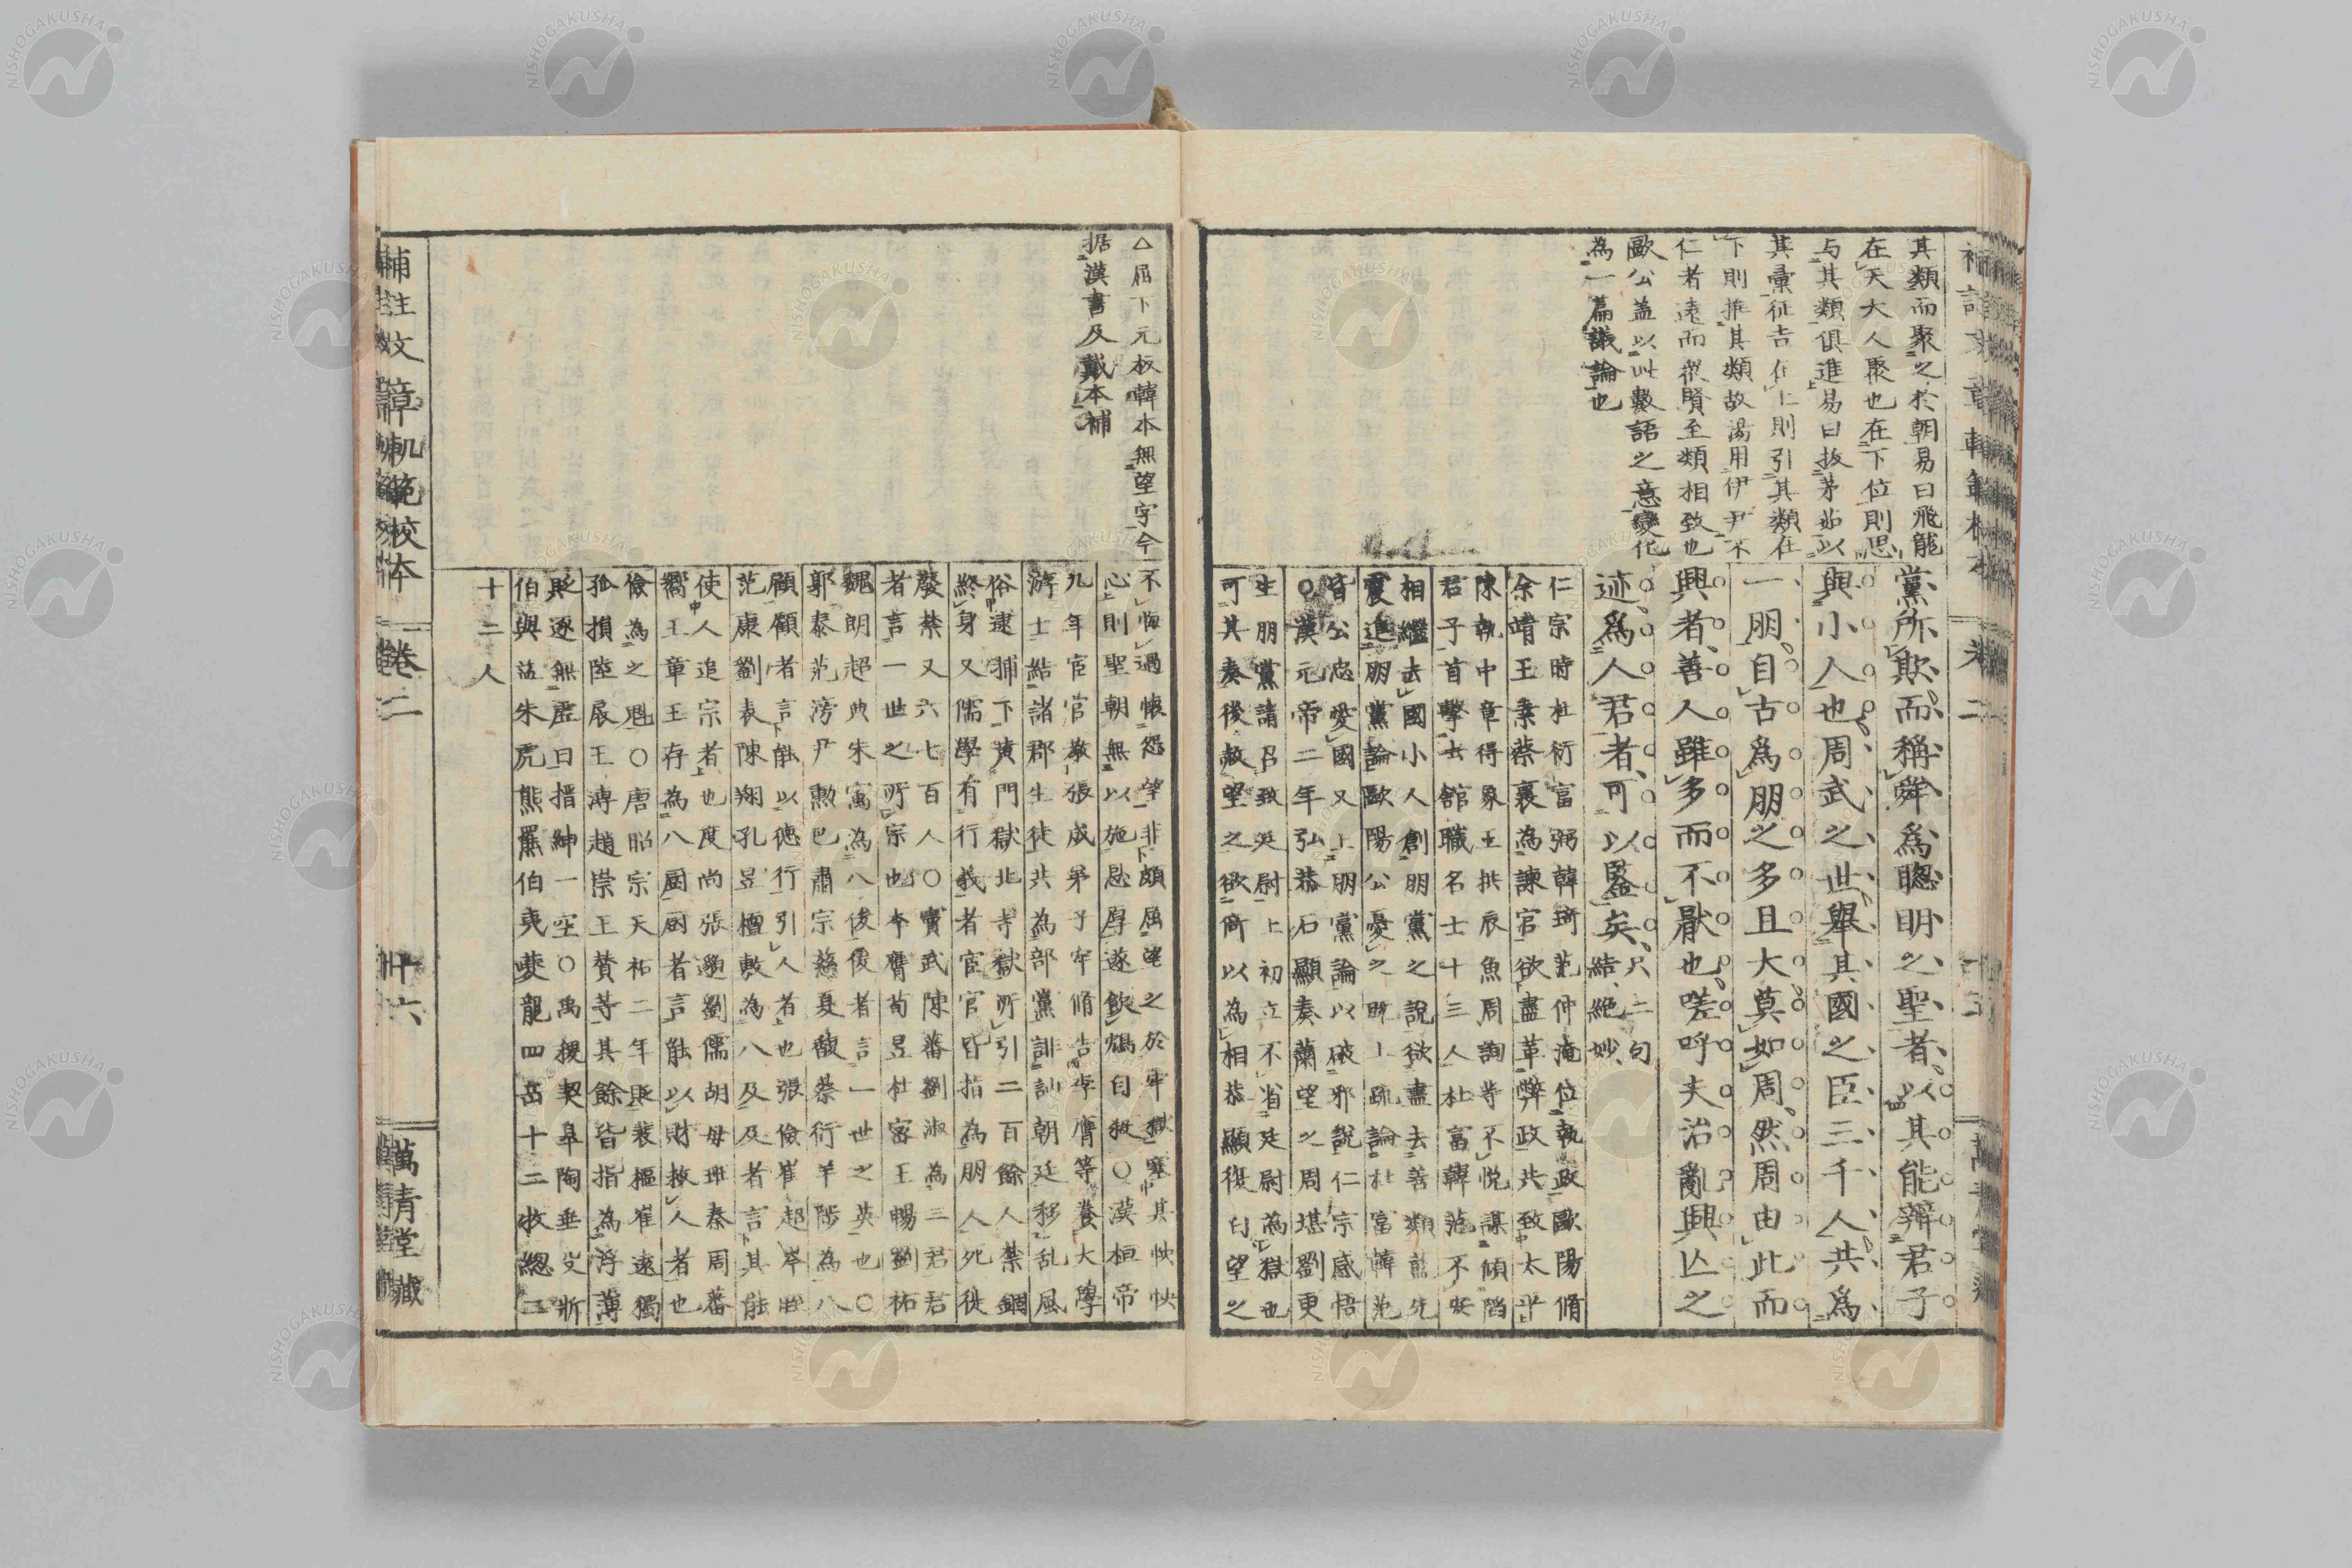 其類而聚之於朝易曰飛龍
在天大人聚也在下位則思
与其類俱進易曰拔茅茹以
其彙征吉在上則引其類在
下則推其類故湯用伊尹不
仁者遠而衆賢至類相致也
歐公盖以此數語之意變化
為一篇議論也
黨所欺而稱舜爲聰明之聖者以其能辨君子
與小人也周武之世舉其國之臣三千人共爲
一朋自古爲朋之多且大莫如周然周由此而
興者善人雖多而不厭也嗟呼夫治亂興亾之
迹爲人君者可以鑒矣只二句
結絕妙
仁宗時杜衍富弼韓琦范仲淹位執政歐陽脩
余靖王素蔡襄為諫官欲盡革弊政共致太平
陳執中章得象王拱辰魚周詢等不悅謀傾陷
君子首擊去舘職名士十三人杜富韓范不安
相繼去國小人創朋黨之說欲盡去善類藍先
震進朋黨論歐陽公憂之既上疏論杜富韓范
皆公忠愛國又上朋黨論以破邪說仁宗感悟
○漢元帝二年弘恭石顯奏蕭望之周堪劉更
生朋黨請召致廷尉上初立不省廷尉為獄也
可其奏後赦望之欲倚以為相恭顯復白望之
補註文章軌範校本
卷二
十六
萬青堂藏
△屈下元板韓本無望字今
据漢書及戴本補
不悔過懷怨望非頗屈望之於牢獄塞其怏怏
心則聖朝無以施恩厚遂飲鴆自殺○漢桓帝
九年宦官敎張成弟子牢脩告李膺等養大學
游士結諸郡生徒共為部黨訕訓朝廷移乱風
俗逮捕下黄門獄北寺獄所引二百餘人禁錮
終身又儒學有行義者宦官皆指為朋人死徙
廢禁又六七百人○竇武陳蕃劉淑為三君君
者言一世之所宗也李膺荀昱杜密王暢劉祐
魏朗趙典朱寓為八俊俊者言一世之英也○
郭泰范滂尹勲巴肅宗慈夏馥蔡衍羊陟為八
顧顧者言能以德行引人者也張儉翟超岑晊
范康劉表陳翔孔昱檀敷為八及及者言其能
使人追宗者也度尚張邈劉儒胡母班秦周蕃
嚮王章王存為八厨厨者言能以財救人者也
儉為之魁○唐昭宗天祐二年貶裴樞崔遠獨
孤損陸扆王溥趙崇王賛等其餘皆指為浮薄
貶逐無虗日搢紳一空○禹稷契皋陶垂殳斨
伯與益朱虎熊羆伯夷夔龍四岳十二牧總二
十二人